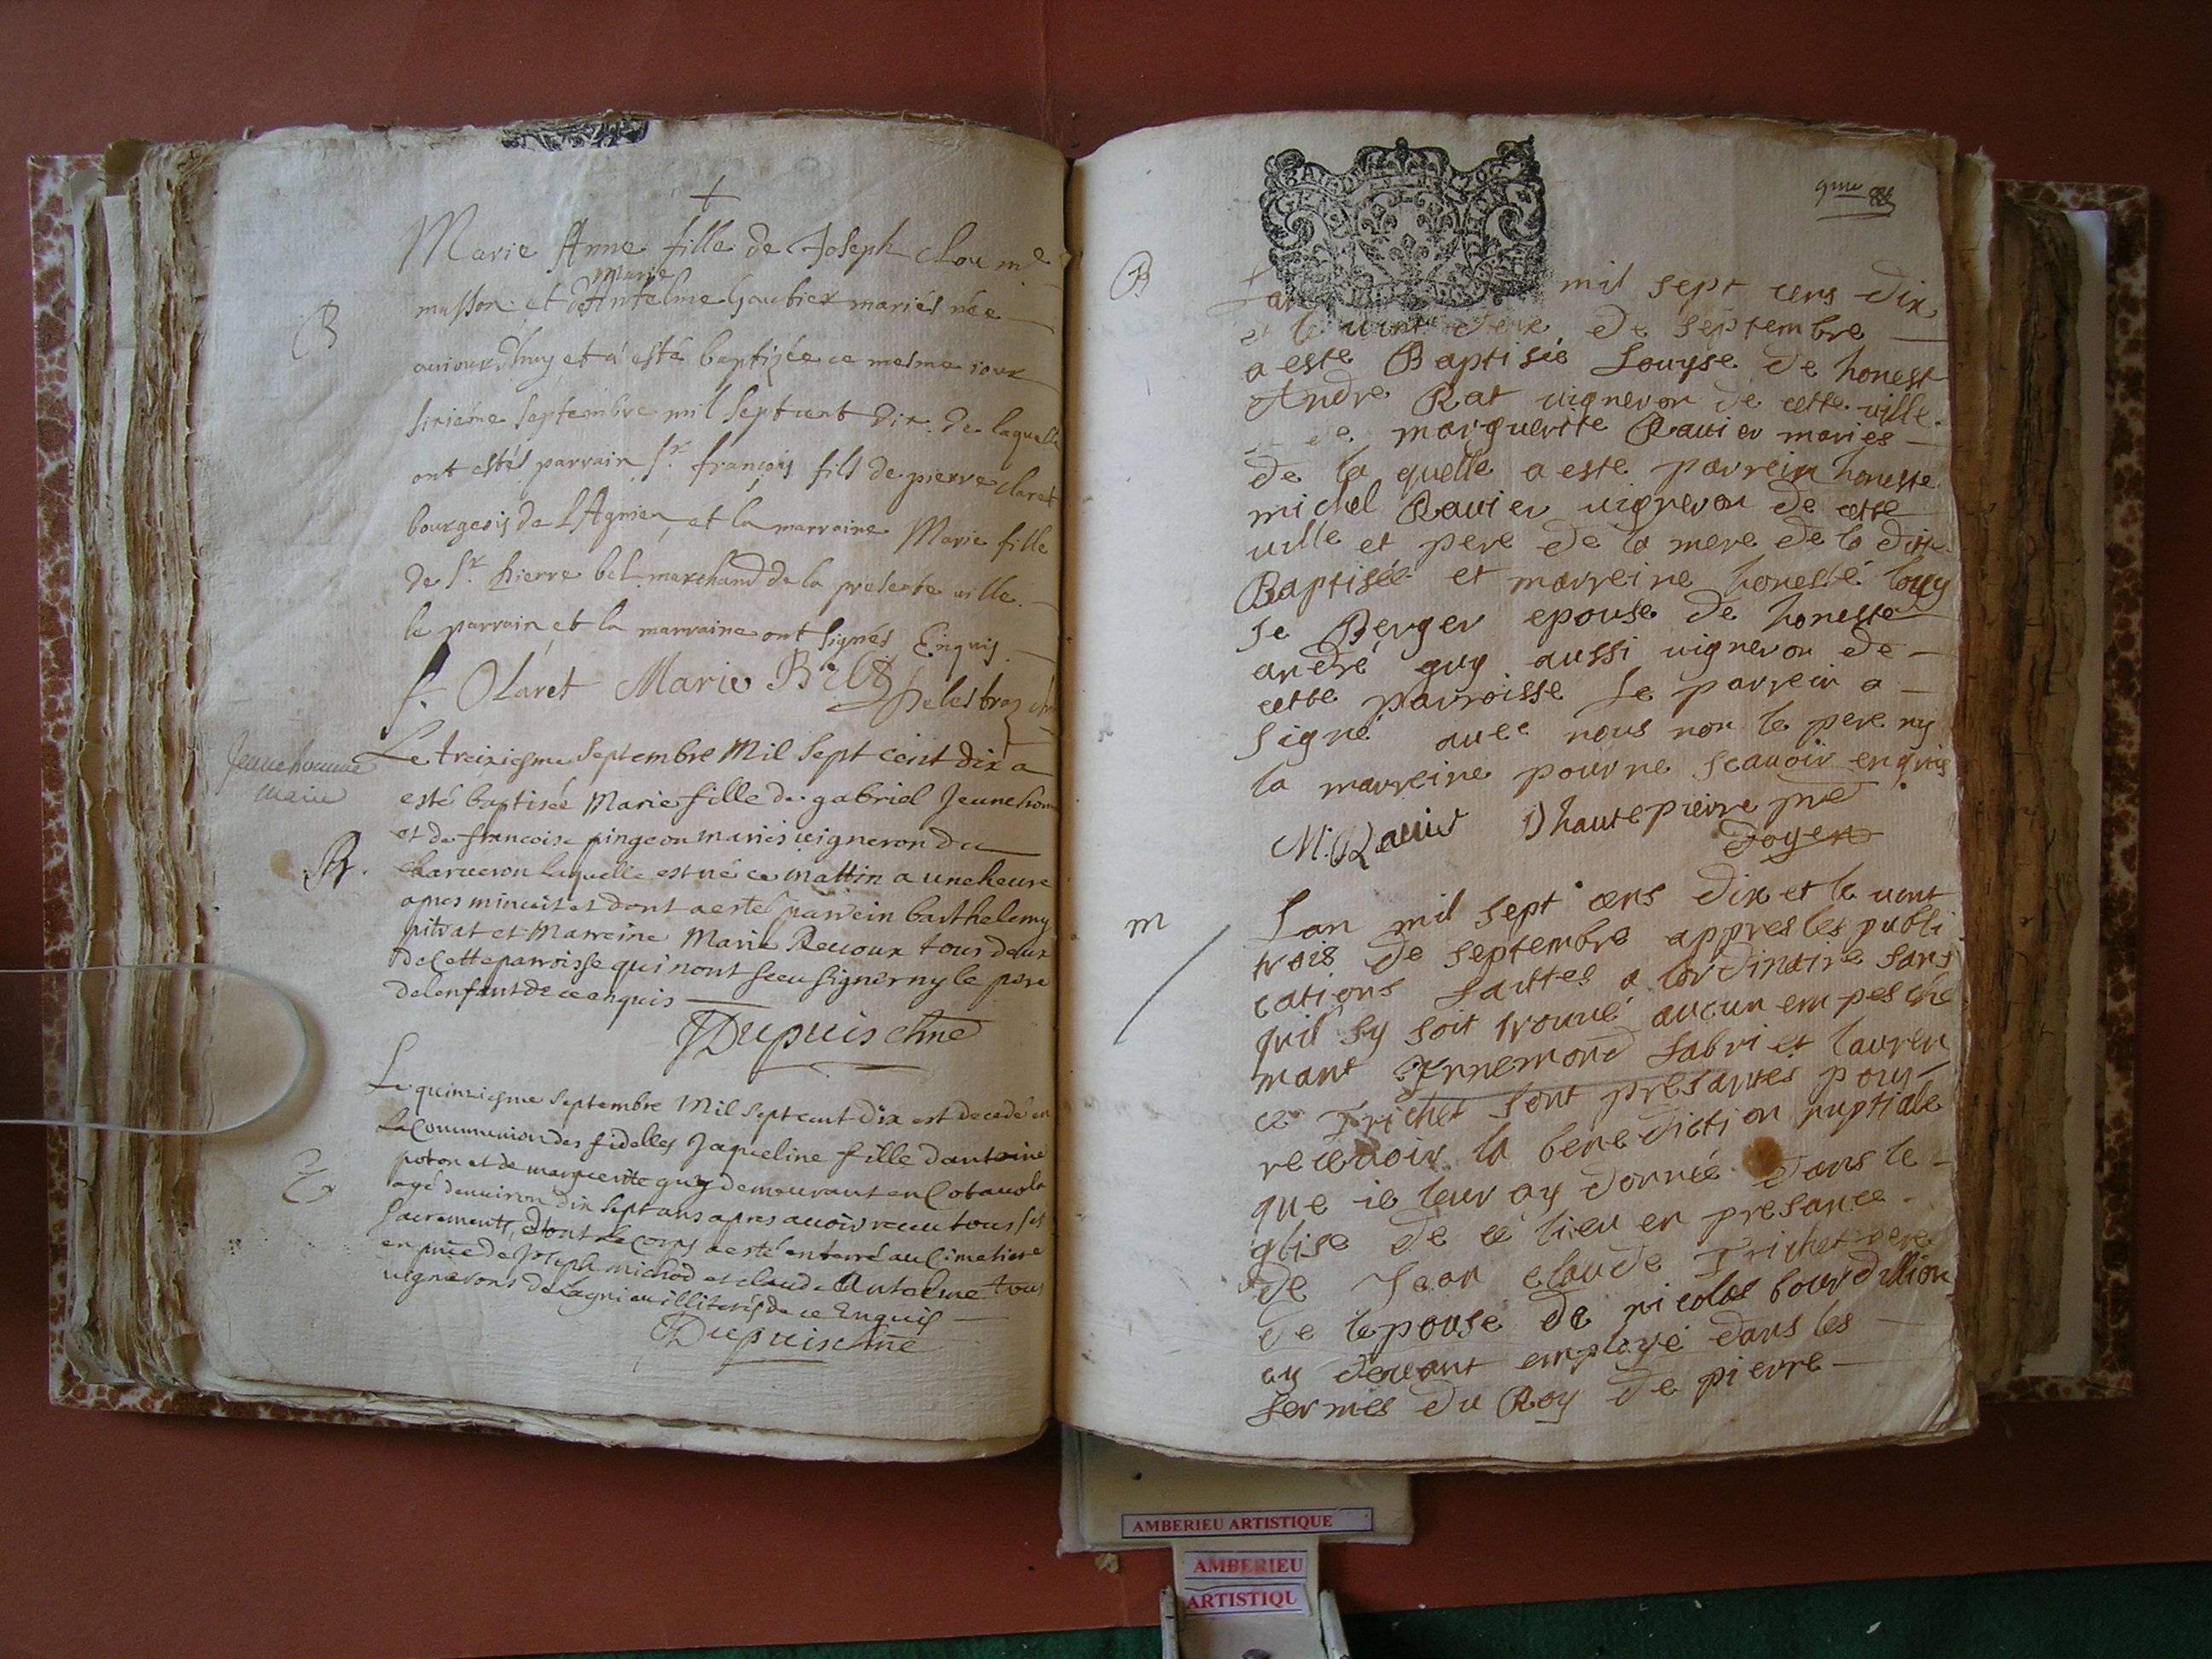 Marie Anne fille de Joseph Clou me
marie
musson et de Antelme Gaubier mariés née
auiourdhuy et a esté baptizée ce mesme iour
sixiéme septembre mil sept cent dix. de laquelle
ont estés parrain sr. françois fils de pierre claret
bourgeois de L'Agnieu et la marraine Marie fille
de sr. pierre bel marchand de la presente ville.
le parrain et la marraine ont signés Enquis
B
f. Claret Marie Bel
Le treiziesme septembre Mil Sept cent dix a
esté baptisée Marie fille de gabriel Jeunehom
et de francoise pingeon mariés uigneron de
charueron laquelle est né ce mattin a une heure
apres minuit et dont a esté parrein barthelemy
pitrat et Marreine Marie Reuoux tous deux
de Cette parroisse qui n'ont sceu signer ny le pere
de lenfant de ce enquis
Jeune homme
Marie
B.
Dupuis chne
Le quinziesme septembre Mil sept cent dix est decedé en
La Communion des fidelles Jaqueline fille dantoine
poton et de marguerite guy demeurant en
agé denuiron dix sept ans apres auoir receu tous ses
Sacrements, dont le corps a esté enterré au Cimetiere
en pnce de Joseph michod et claude Antelme tous
uignerons de Lagnieu illiterés de ce Enquis
Dupuis chne
B
Lan mil sept cens dix
et le uint deux de septembre
a este Baptisée Louyse de honest
Andre Rat uigneron de cette uille.
et de marguerite Rauier maries
de la quelle a este parrein honeste
michel Rauier uigneron de cette
uille et pere de la mere de la ditte
Baptisée et marreine honeste louy
se Berger epouse de honeste
andré guy aussi uigneron de
cette parroisse Le parrein a
signé auec nous non le pere ny
la marreine pour ne scauoir enquis
M. Rauier Dhautepierre pre
Doyen
m
Lan mil sept cens dix et le uint
trois de septembre appres les publi
cations faittes a lordinaire sans
quil sy soit trouué aucun empesche
mant Ennemond fabri et lauren
ce Trichet sont presantes pour
receuoir la benediction nuptiale
que ie leur ay donnée dans le
glise de ce lieu en presance
de Jean claude Trichet pere
de lepouse de nicolas bourdillion
cy deuant employé dans les
fermes du Roy de pierre
AMBERIEU ARTISTIQUE
AMBERIEU
ARTISTIQU